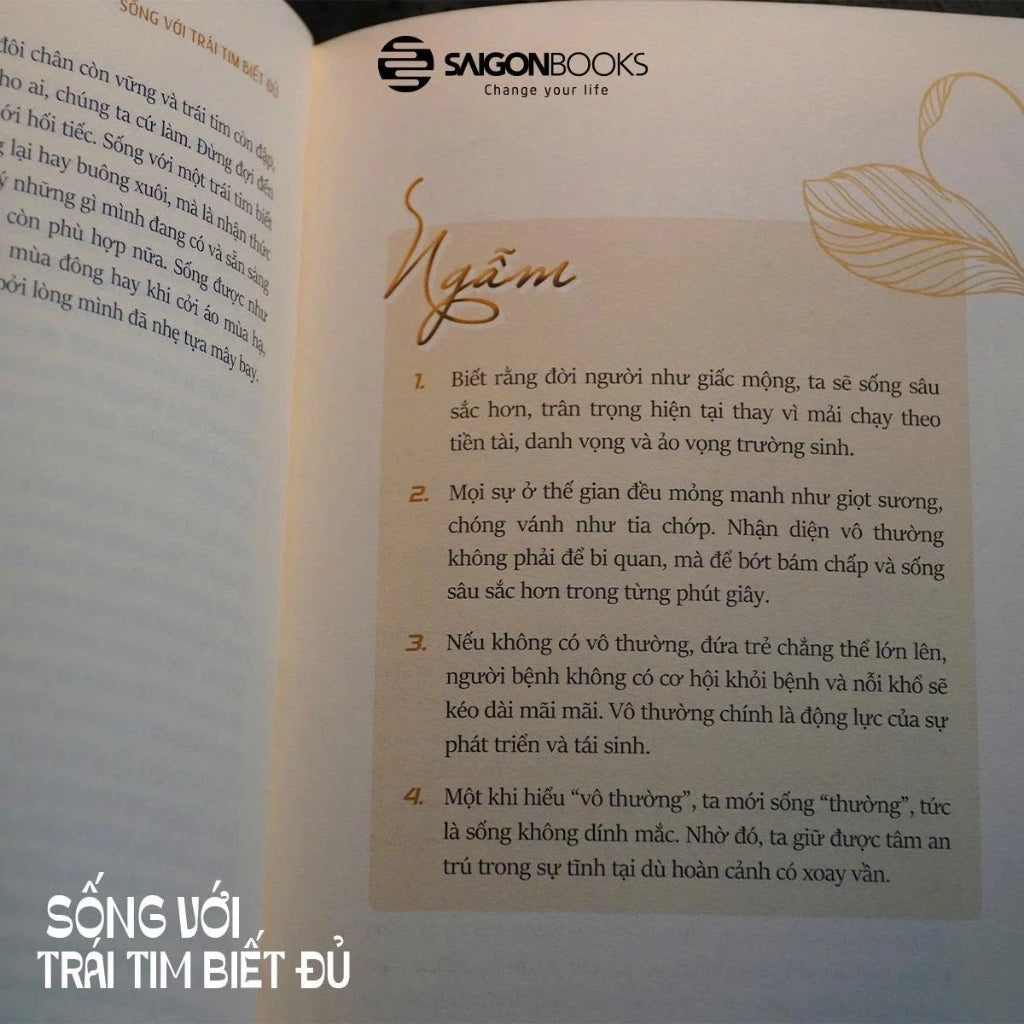 SỐNG VỚI TRÁI TIM BIẾT ĐỦ
đôi chân còn vững và trái tim còn đập,
ho ai, chúng ta cứ làm. Đừng đợi đến
ới hối tiếc. Sống với một trái tim biết
lại hay buông xuôi, mà là nhận thức
những gì mình đang có và sẵn sàng
còn phù hợp nữa. Sống được như
mùa đông hay khi cởi áo mùa hạ,
bởi lòng mình đã nhẹ tựa mây bay.
SAIGONBOOKS
Change your life
Ngẫm
1. Biết rằng đời người như giấc mộng, ta sẽ sống sâu
sắc hơn, trân trọng hiện tại thay vì mải chạy theo
tiền tài, danh vọng và ảo vọng trường sinh.
2. Mọi sự ở thế gian đều mỏng manh như giọt sương,
chóng vánh như tia chớp. Nhận diện vô thường
không phải để bi quan, mà để bớt bám chấp và sống
sâu sắc hơn trong từng phút giây.
3. Nếu không có vô thường, đứa trẻ chẳng thể lớn lên,
người bệnh không có cơ hội khỏi bệnh và nỗi khổ sẽ
kéo dài mãi mãi. Vô thường chính là động lực của sự
phát triển và tái sinh.
4. Một khi hiểu “vô thường”, ta mới sống “thường”, tức
là sống không dính mắc. Nhờ đó, ta giữ được tâm an
trú trong sự tĩnh tại dù hoàn cảnh có xoay vần.
SỐNG VỚI
TRÁI TIM BIẾT ĐỦ